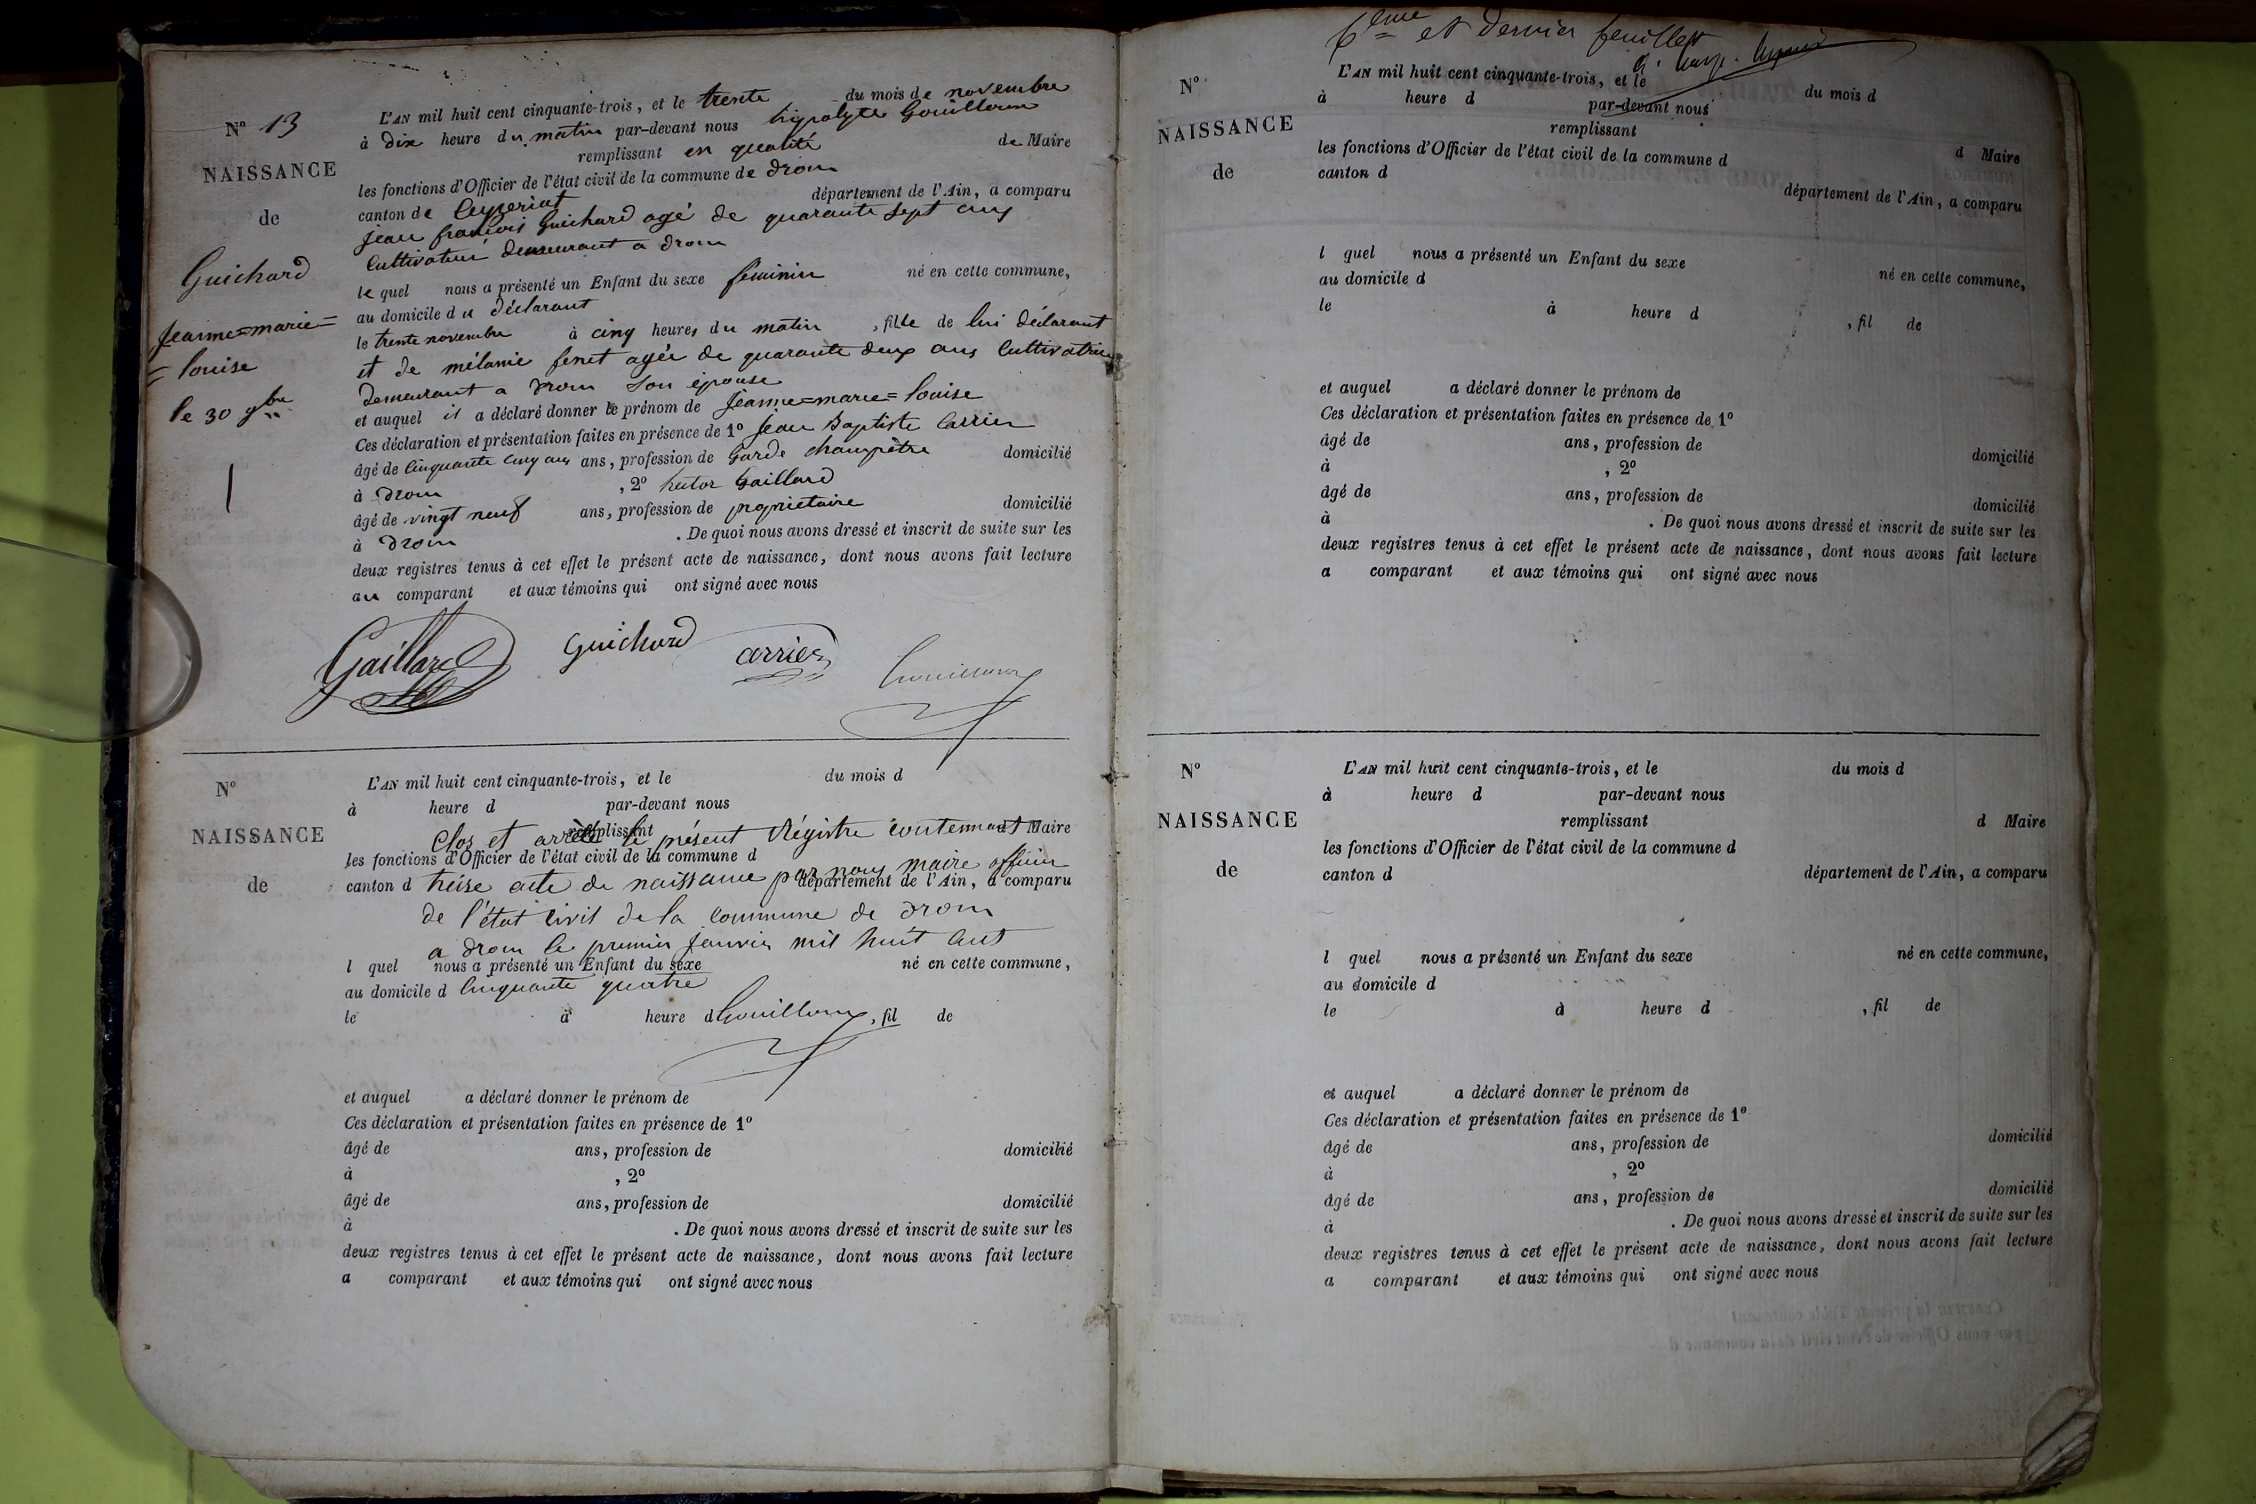 N° 13
NAISSANCE
de
Guichard
Jeanne=marie=
= louise
le 30 9bre
L'AN mil huit cent cinquante-trois, et le trente du mois de novembre
à dix heure du matin par-devant nous hypolyte Gouilloux
remplissant en qualité de Maire
les fonctions d'Officier de l'état civil de la commune de drom
canton de Ceyzeriat département de l'Ain, a comparu
jean francois Guichard agé de quarante sept ans
Cultivateur demeurant a drom
le quel nous a présenté un Enfant du sexe féminin né en cette commune,
au domicile du déclarant
le trente novembre à cinq heures du matin, fille de lui déclarant
et de mélanie fenet agée de quarante deux ans Cultivatrice
demeurant a drom son épouse
et auquel il a déclaré donner le prénom de Jeanne=marie=louise
Ces déclaration et présentation faites en présence de 1° jean Baptiste Carrier
âgé de Cinquante cinq ans ans, profession de Garde champètre domicilié
à drom, 2° hector Gaillard
âgé de vingt neuf ans, profession de proprietaire domicilié
à drom. De quoi nous avons dressé et inscrit de suite sur les
deux registres tenus à cet effet le présent acte de naissance, dont nous avons fait lecture
au comparant et aux témoins qui ont signé avec nous
Gaillard Guichard Carrier Gouilloux
N°
NAISSANCE
de
L'AN mil huit cent cinquante-trois, et le du mois d
à heure d par-devant nous
remplissant d Maire
Clos et arrêté le présent Régistre contennant
les fonctions d'Officier de l'état civil de la commune d
canton d département de l'Ain, a comparu
treise acte de naissance par nous maire officier
de l'état civil de la commune de drom
a drom le premier janvier mil huit cent
l quel nous a présenté un Enfant du sexe né en cette commune,
au domicile d Cinquante quatre
le à heure d Gouilloux, fil de
et auquel a déclaré donner le prénom de
Ces déclaration et présentation faites en présence de 1°
âgé de ans, profession de domicilié
à , 2°
âgé de ans, profession de domicilié
à . De quoi nous avons dressé et inscrit de suite sur les
deux registres tenus à cet effet le présent acte de naissance, dont nous avons fait lecture
a comparant et aux témoins qui ont signé avec nous
6ème et dernier feuillet
N°
NAISSANCE
de
L'AN mil huit cent cinquante-trois, et le du mois d
à heure d par-devant nous
remplissant d Maire
les fonctions d'Officier de l'état civil de la commune d
canton d département de l'Ain, a comparu
l quel nous a présenté un Enfant du sexe né en cette commune,
au domicile d
le à heure d , fil de
et auquel a déclaré donner le prénom de
Ces déclaration et présentation faites en présence de 1°
âgé de ans, profession de domicilié
à , 2°
âgé de ans, profession de domicilié
à . De quoi nous avons dressé et inscrit de suite sur les
deux registres tenus à cet effet le présent acte de naissance, dont nous avons fait lecture
a comparant et aux témoins qui ont signé avec nous
N°
NAISSANCE
de
L'AN mil huit cent cinquante-trois, et le du mois d
à heure d par-devant nous
remplissant d Maire
les fonctions d'Officier de l'état civil de la commune d
canton d département de l'Ain, a comparu
l quel nous a présenté un Enfant du sexe né en cette commune,
au domicile d
le à heure d , fil de
et auquel a déclaré donner le prénom de
Ces déclaration et présentation faites en présence de 1°
âgé de ans, profession de domicilié
à , 2°
âgé de ans, profession de domicilié
à . De quoi nous avons dressé et inscrit de suite sur les
deux registres tenus à cet effet le présent acte de naissance, dont nous avons fait lecture
a comparant et aux témoins qui ont signé avec nous